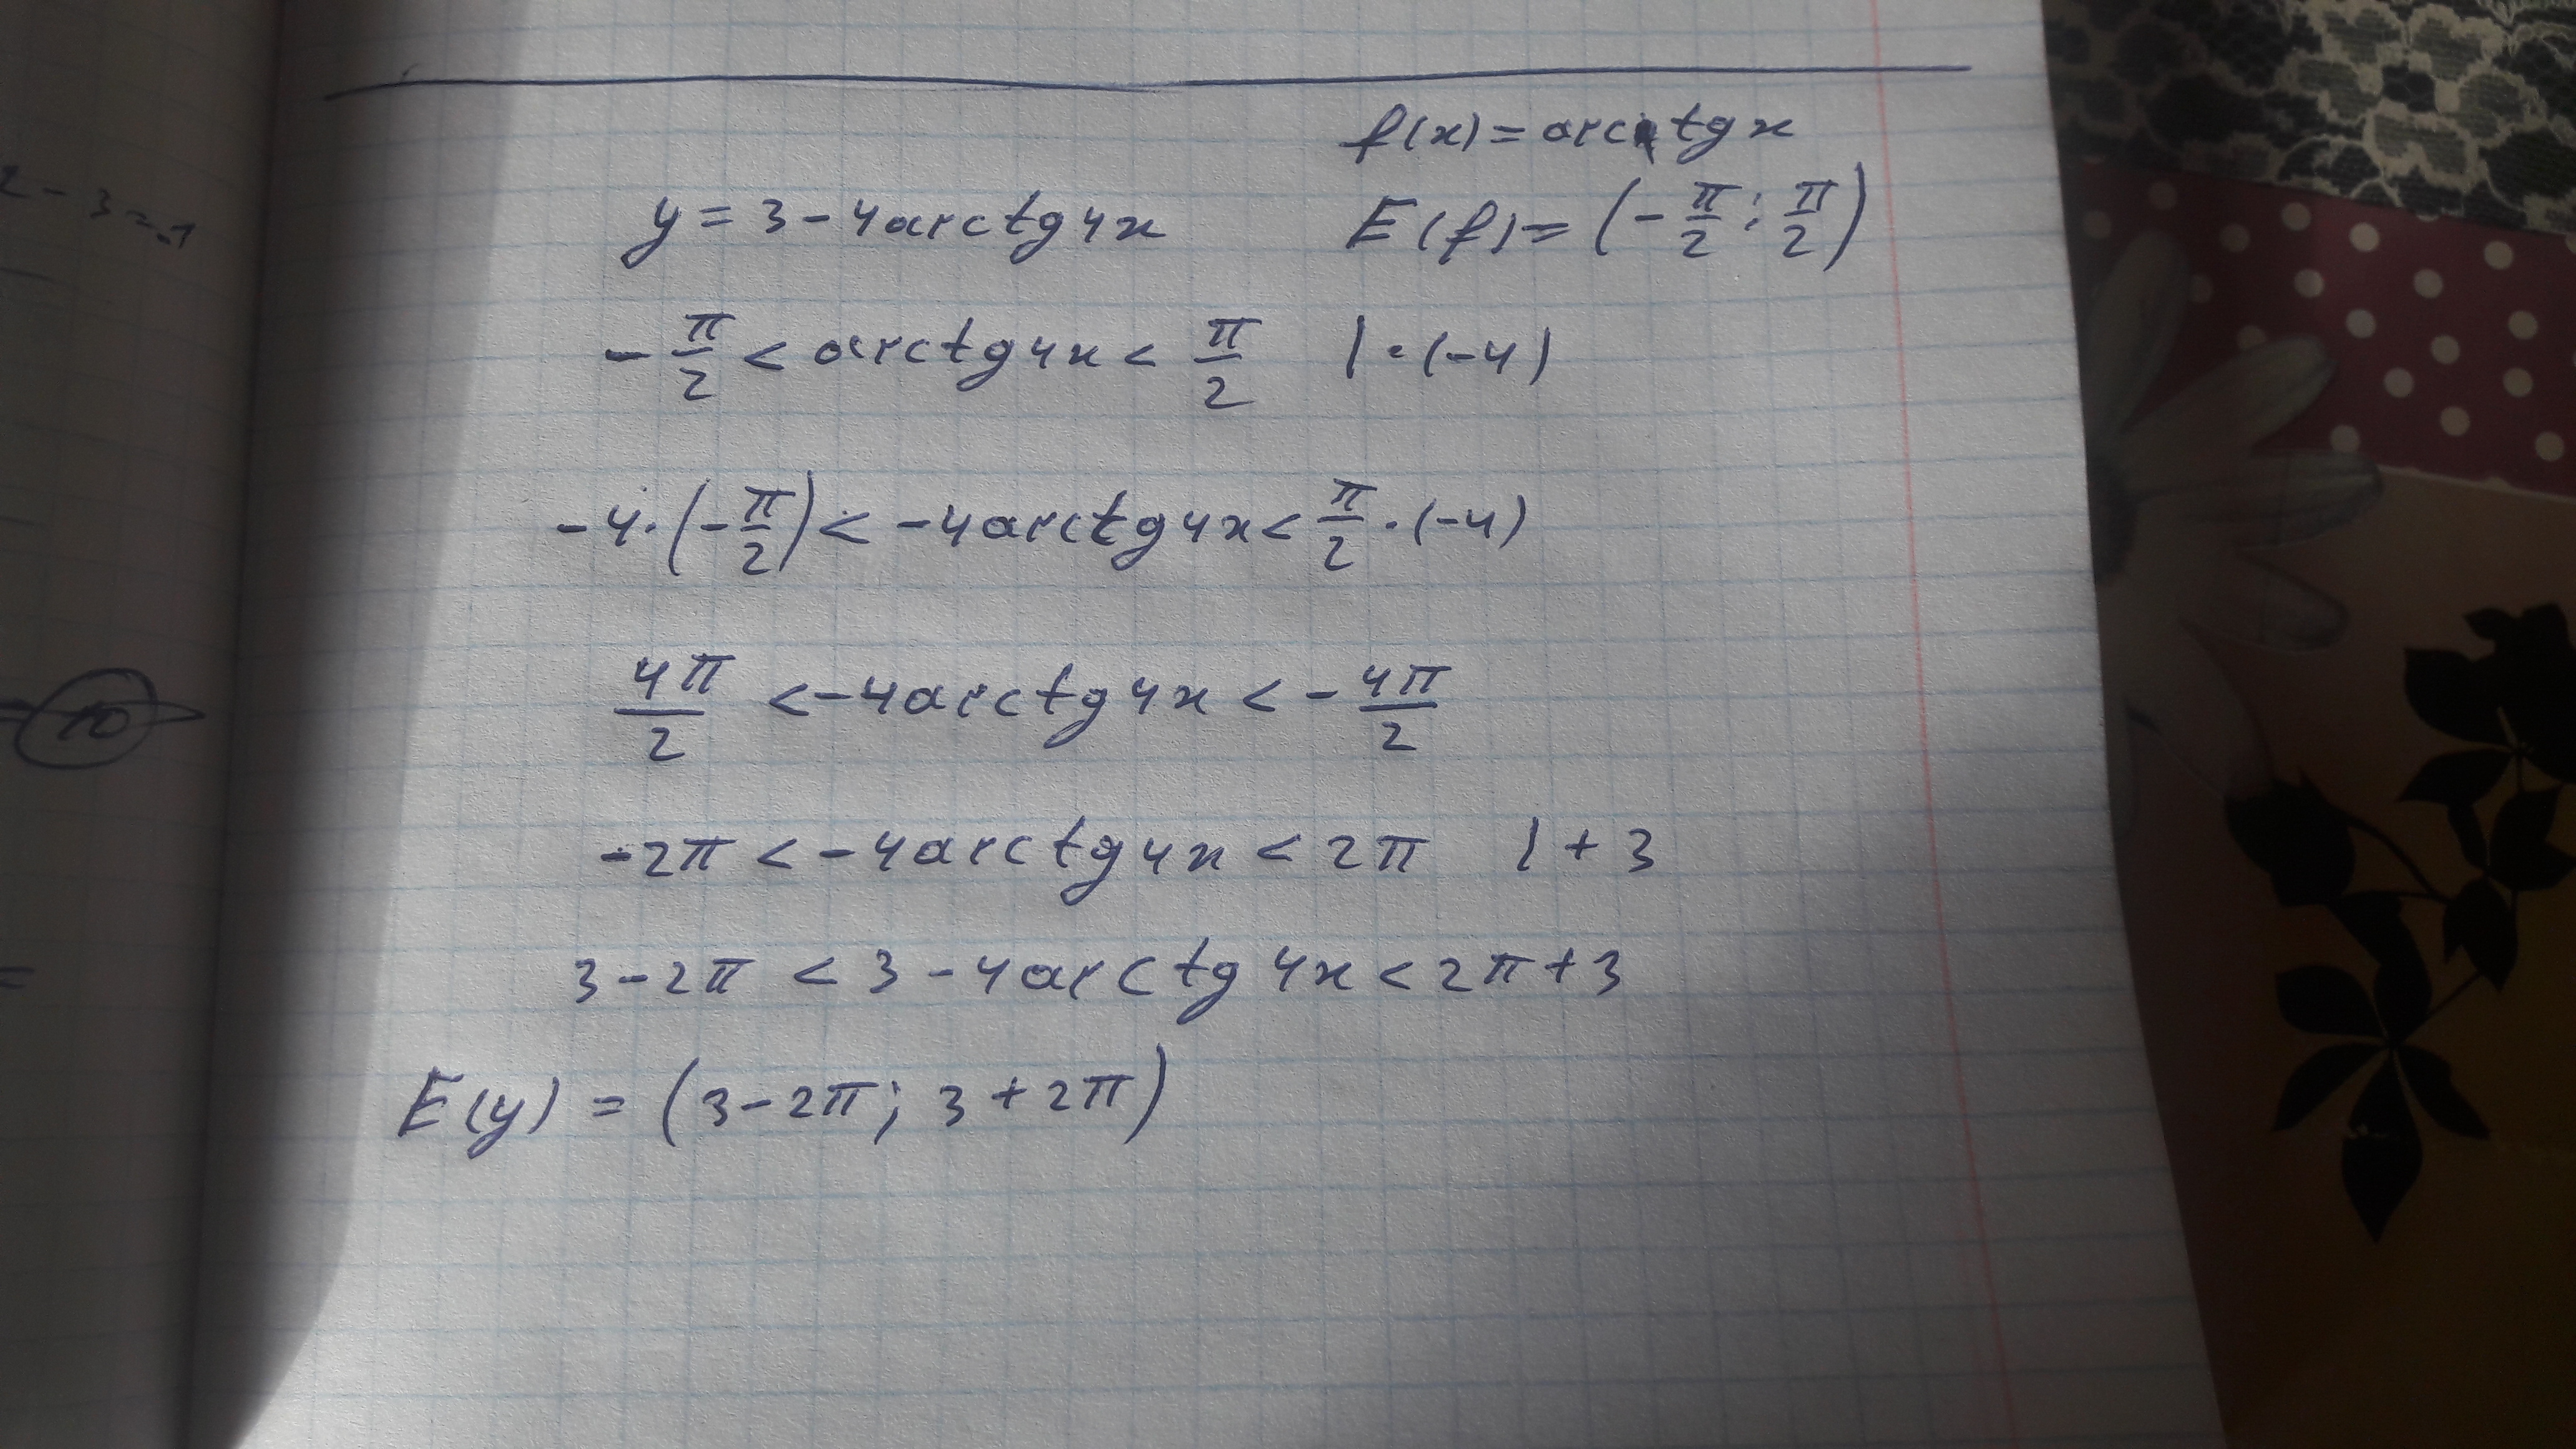 2 - 3 = -1
= 10
=
f(x) = arctg x
y = 3 - 4arctg4x E(f) = (-π/2; π/2)
-π/2 < arctg4x < π/2 | · (-4)
-4 · (-π/2) < -4arctg4x < π/2 · (-4)
4π/2 < -4arctg4x < -4π/2
-2π < -4arctg4x < 2π | + 3
3 - 2π < 3 - 4arctg4x < 2π + 3
E(y) = (3 - 2π; 3 + 2π)